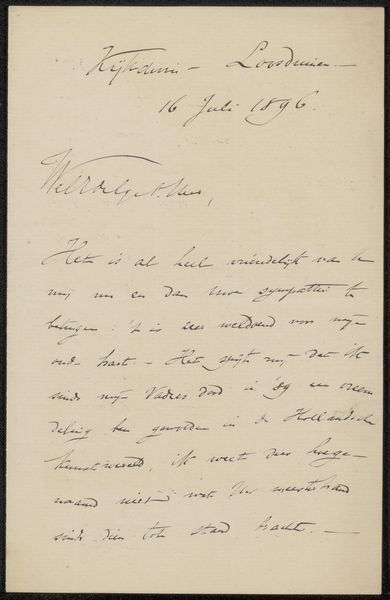 Kijkduin – Loosduinen. –
16 Juli 1896.
WelEdelgeb. Heer,
Het is al heel vriendelijk van U
mij nu en dan Uwe sympathie te
betuigen: 't is zeer weldoend voor mijn
oude hart. – Het spijt mij dat ik
sinds mijn Vaders dood in '89 een vreem
deling ben geworden in de Hollandsche
kunstwereld, ik weet dus hoege-
naamd niet wat Uw meesterhand
sinds dien tot stand bracht. –